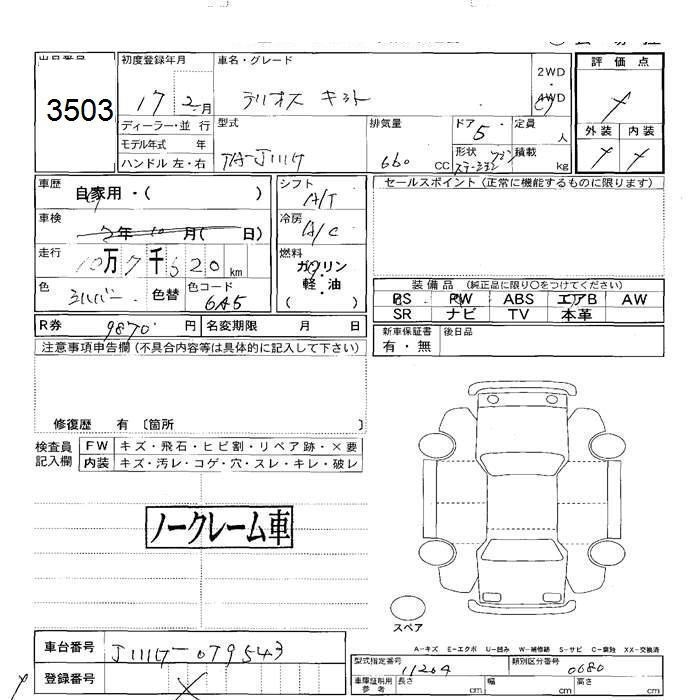 初度登録年月 車名・グレード 評価点
3503 17 2月 テリオス キッド 2WD 4WD
ディーラー・並行 型式 排気量 ドア 5 定員 人 外装 内装
モデル年式 年
ハンドル 左・右 TA-J111G 660 CC 形状 ステーション ワゴン 積載 kg
車歴 自家用・( ) シフト A/T セールスポイント (正常に機能するものに限ります)
車検 年 10月( 日) 冷房 A/C
走行 10万7千520km 燃料 ガソリン
軽・油
( )
色 シルバー 色替 色コード 6A5 装備品 (純正品に限り○をつけてください)
PS PW ABS エアB AW
SR ナビ TV 本革
R券 9870 円 名変期限 月 日 新車保証書 後日品
有・無
注意事項申告欄 (不具合内容等は具体的に記入して下さい)
修復歴 有 〔箇所 〕
検査員 FW キズ・飛石・ヒビ割・リペア跡・×要
記入欄 内装 キズ・汚レ・コゲ・穴・スレ・キレ・破レ
ノークレーム車
スペア
A-キズ E-エクボ U-凹み W-補修跡 S-サビ C-腐蝕 XX-交換済
車台番号 J111G-079543
型式指定番号 11264 類別区分番号 0680
登録番号 X 車庫証明用 参考 長さ cm 幅 cm 高さ cm